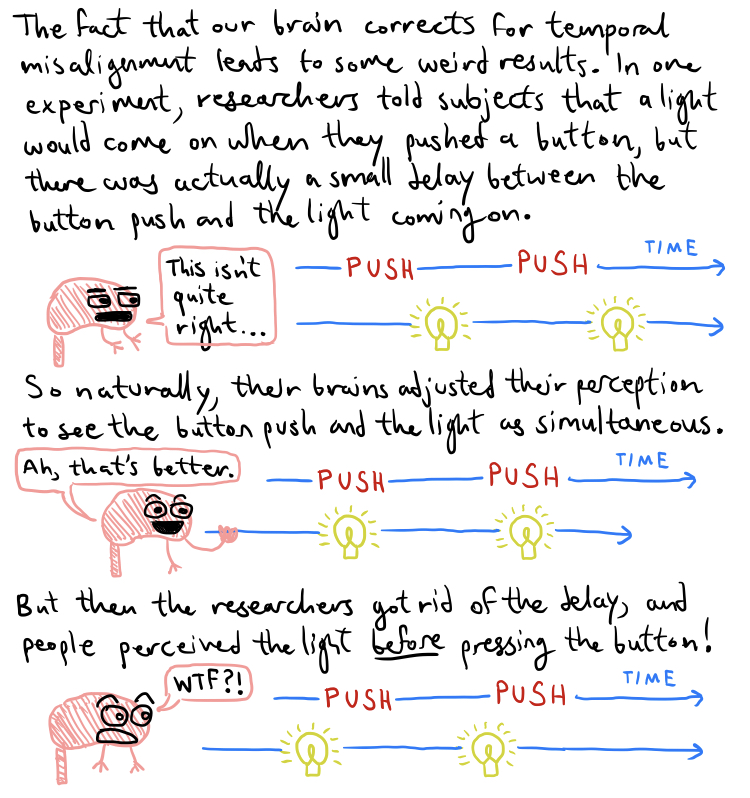 The fact that our brain corrects for temporal
misalignment leads to some weird results. In one
experiment, researchers told subjects that a light
would come on when they pushed a button, but
there was actually a small delay between the
button push and the light coming on.
This isn't
quite
right...
PUSH PUSH TIME
So naturally, their brains adjusted their perception
to see the button push and the light as simultaneous.
Ah, that's better.
PUSH PUSH TIME
But then the researchers got rid of the delay, and
people perceived the light before pressing the button!
WTF?!
PUSH PUSH TIME